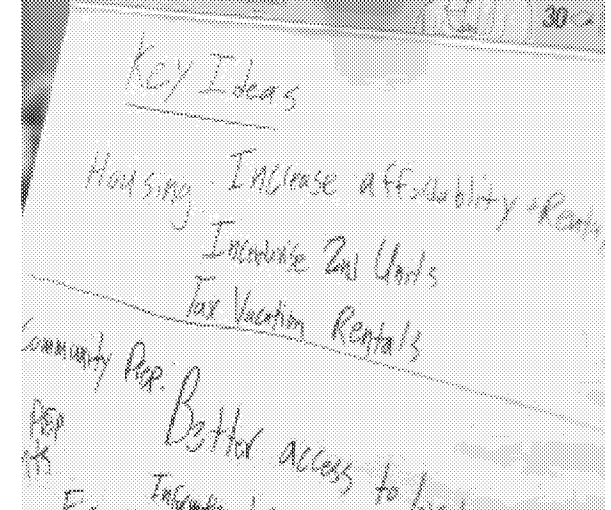 30
Key Ideas
Housing - Increase affordablity + Rental
Incentivise 2nd Units
Tax Vacation Rentals
Community Prep.
Better access to
PEP